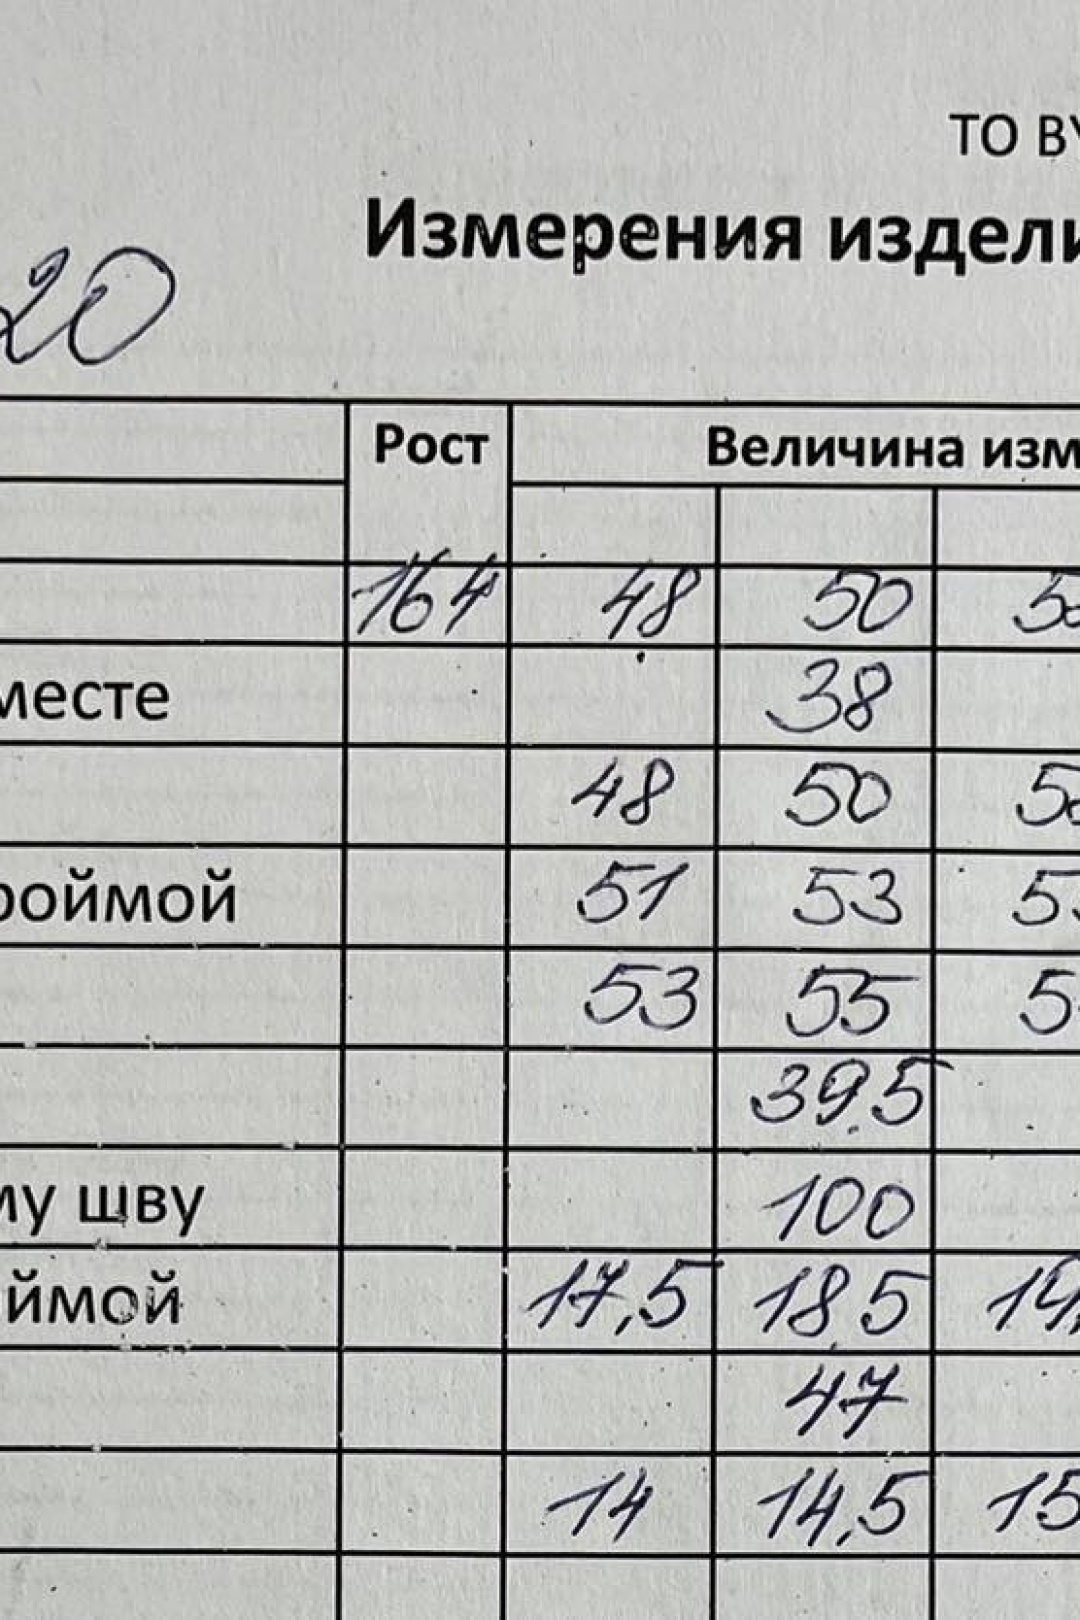 ТО BY
Измерения издели
20
Рост Величина изм
164 48 50
месте 38
48 50
роймой 51 53
53 55
39,5
му шву 100
ймой 17,5 18,5 19,
47
14 14,5 15